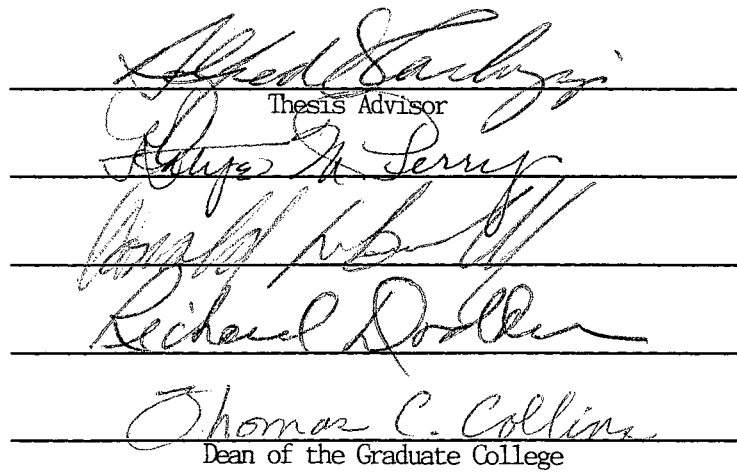 Alfred Carlozzi
Thesis Advisor
M. Perry
Donald
Richard Dodder
Thomas C. Collins
Dean of the Graduate College